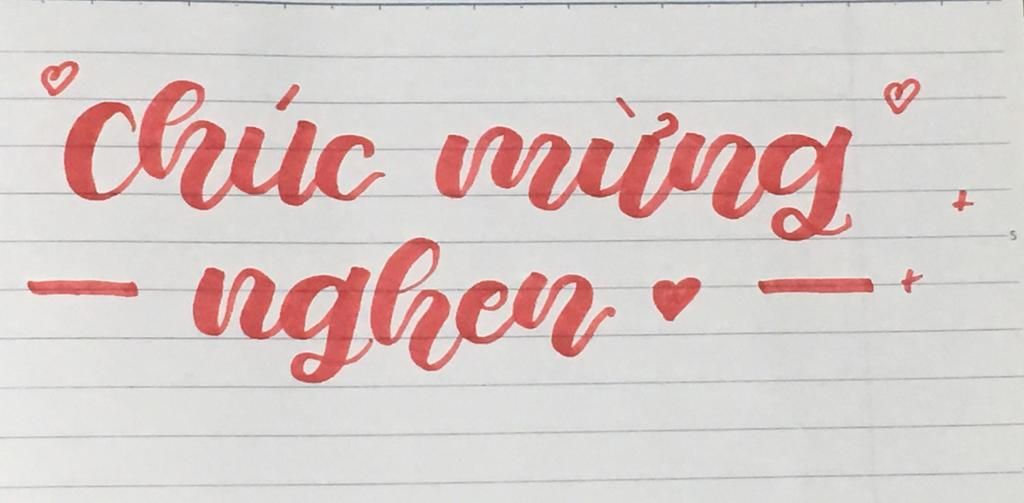 chúc mừng
nghen
5